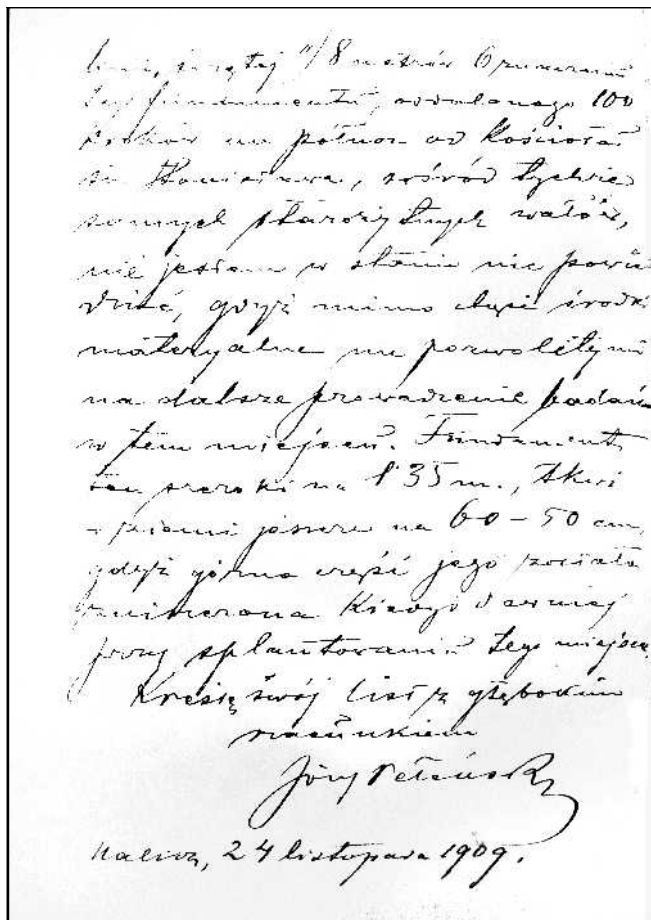 8 metrów
tego fundamentu, oddalonego 100
kroków na północ od Kościoła
św. Stanisława, wśród tychże
samych starożytnych wałów,
nie jestem w stanie nic powie
dzieć, gdyż mimo chęci środki
materyalne nie pozwoliły mi
na dalsze prowadzenie badań
w tem miejscu. Fundament
ten szeroki na 1·35 m., tkwi
w ziemi jeszcze na 60–50 cm,
gdyż górna część jego została
zniszczona kiedyś dawniej
przy splantowaniu tego miejsca.
Kreślę swój list z głębokim
szacunkiem
Halicz, 24 listopada 1909.